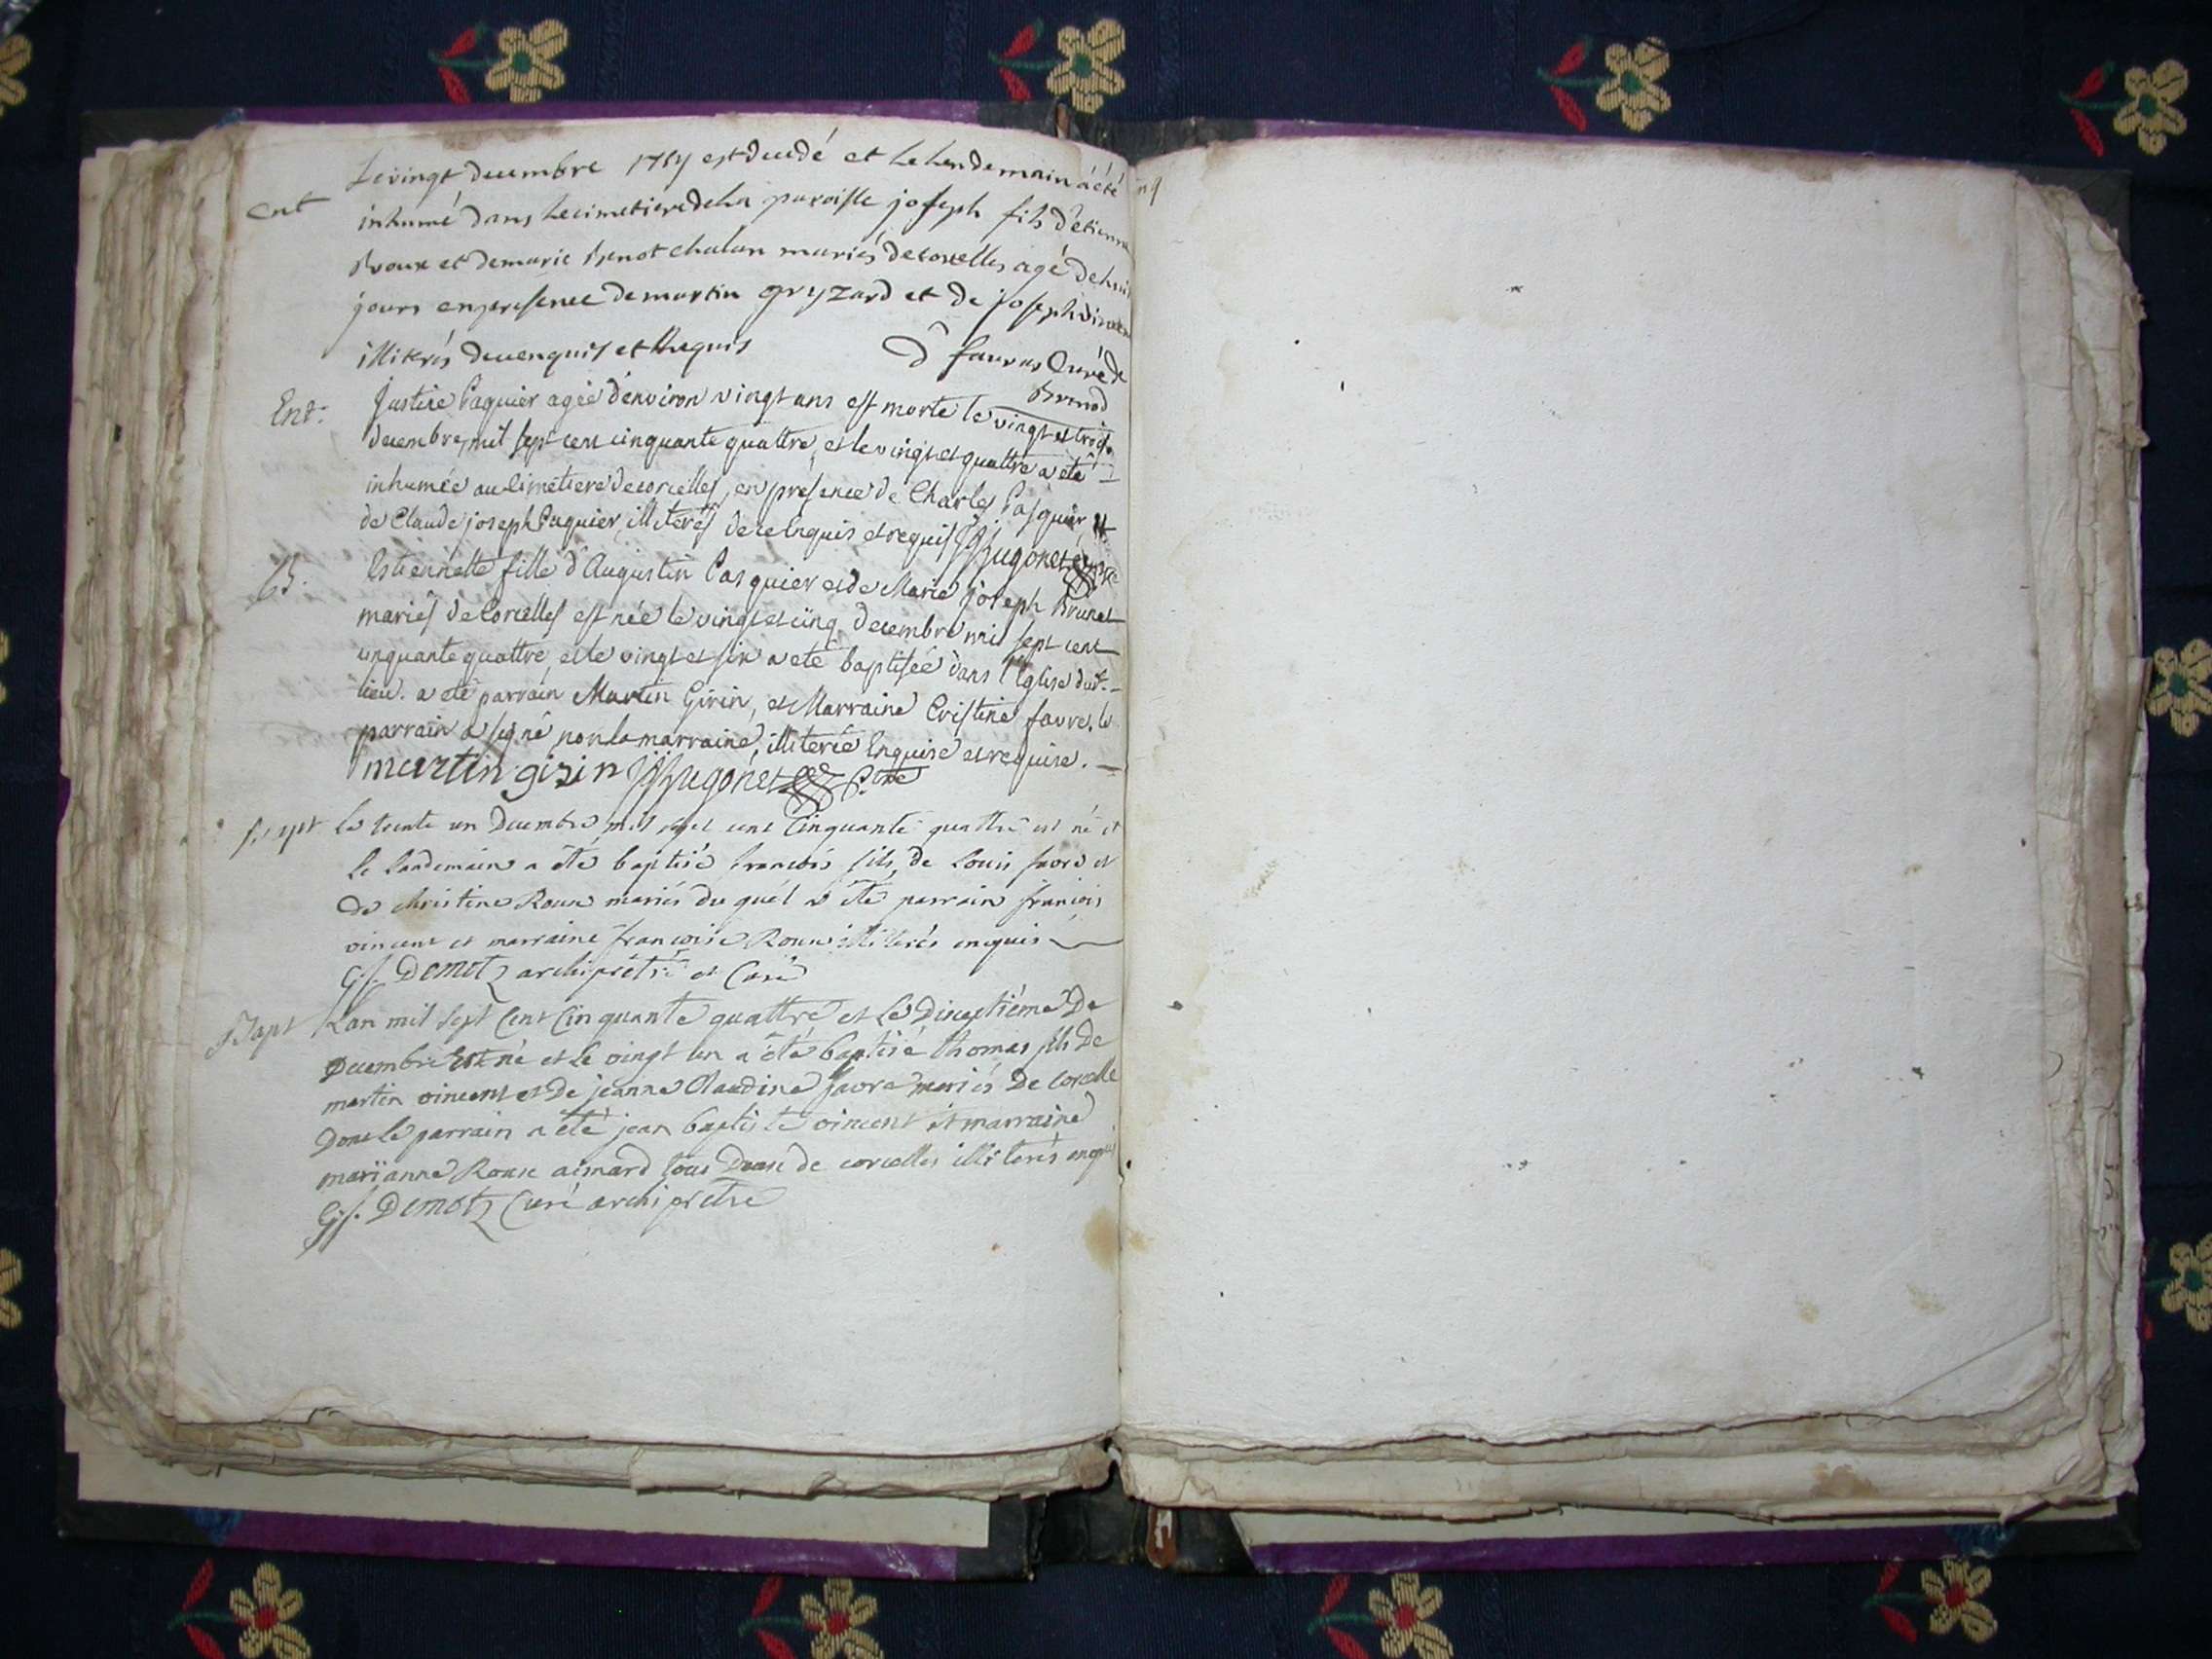 Le vingt decembre 1754 est decedé et le lendemain a été
Ent inhumé dans le cimetiere de la paroisse joseph fils d'étienne
Roux et de marie chalan mariés de corcelles agé de huit
jours en presence de martin gryzard et de joseph vincent
illiterés de ce enquis et requis D favras Curé de
Brenod
Ent. Justine Paquier agée d'environ vingt ans est morte le vingt et trois
decembre mil sept cent cinquante quattre, et le vingt et quattre a eté
inhumée au Cimetiere de corcelles, en présence de Charles Pasquier, et
de Claude joseph Paquier, illiterés de ce Enquis et requis JHugonet
B. Estiennette fille d'Augustin Pasquier et de Marie joseph Brunet
mariés de Corcelles est née le vingt et cinq decembre mil sept cent
cinquante quattre, et le vingt et six a eté baptisée dans l'Eglise dud.
lieu. a eté parrain Martin Girin, et Marraine Cristine favre, le
parrain a signé non la marraine, illiterée Enquise et requise.
martin girin JHugonet
le trente un Decembre mil sept cent Cinquante quattre est né et
le landemain a été baptisé francois fils de Louis favre et
de christine Roux mariés du quel a été parrain francois
vincent et marraine francoise Roux illiterés enquis
G.f. Demotz archiprêtre et Curé
Bapt Lan mil sept Cent Cinquante quattre et le Diseptiéme De
Decembre Est né et le vingt un a été baptisé thomas fils De
martin vincent et De jeanne Claudine favre mariés De corcelle
Dont le parrain a été jean baptiste vincent et marraine
marïanne Roux aimard tous Deux de corcelles illiterés enquis
G.f. Demotz Curé archiprêtre